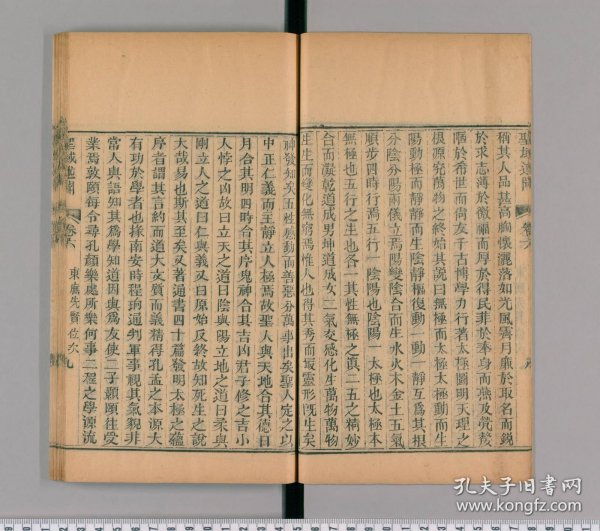 聖域述聞 卷六
稱其人品甚高胸懷灑落如光風霽月廉於取名而銳
於求志薄於徼福而厚於得民菲於奉身而燕及煢嫠
陋於希世而尚友千古博學力行著太極圖明天理之
根源究萬物之終始其說曰無極而太極太極動而生
陽動極而靜靜而生陰靜極復動一動一靜互爲其根
分陰分陽兩儀立焉陽變陰合而生水火木金土五氣
順步四時行焉五行一陰陽也陰陽一太極也太極本
無極也五行之生也各一其性無極之眞二五之精妙
合而凝乾道成男坤道成女二氣交感化生萬物萬物
生生而變化無窮焉惟人也得其秀而最靈形旣生矣
神發知矣五性感動而善惡分萬事出矣聖人定之以
中正仁義而主靜立人極焉故聖人與天地合其德日
月合其明四時合其序鬼神合其吉凶君子修之吉小
人悖之凶故曰立天之道曰陰與陽立地之道曰柔與
剛立人之道曰仁與義又曰原始反終故知死生之說
大哉易也斯其至矣又著通書四十篇發明太極之蘊
序者謂其言約而道大文質而義精得孔孟之本源大
有功於學者也掾南安時程珦通判軍事視其氣貌非
常人與語知其爲學知道因與爲友使二子顥頤往受
業焉敦頤每令尋孔顏樂處所樂何事二程之學源流
聖域述聞 卷六 東廡先賢位次 九
孔夫子旧书网
www.kongfz.com